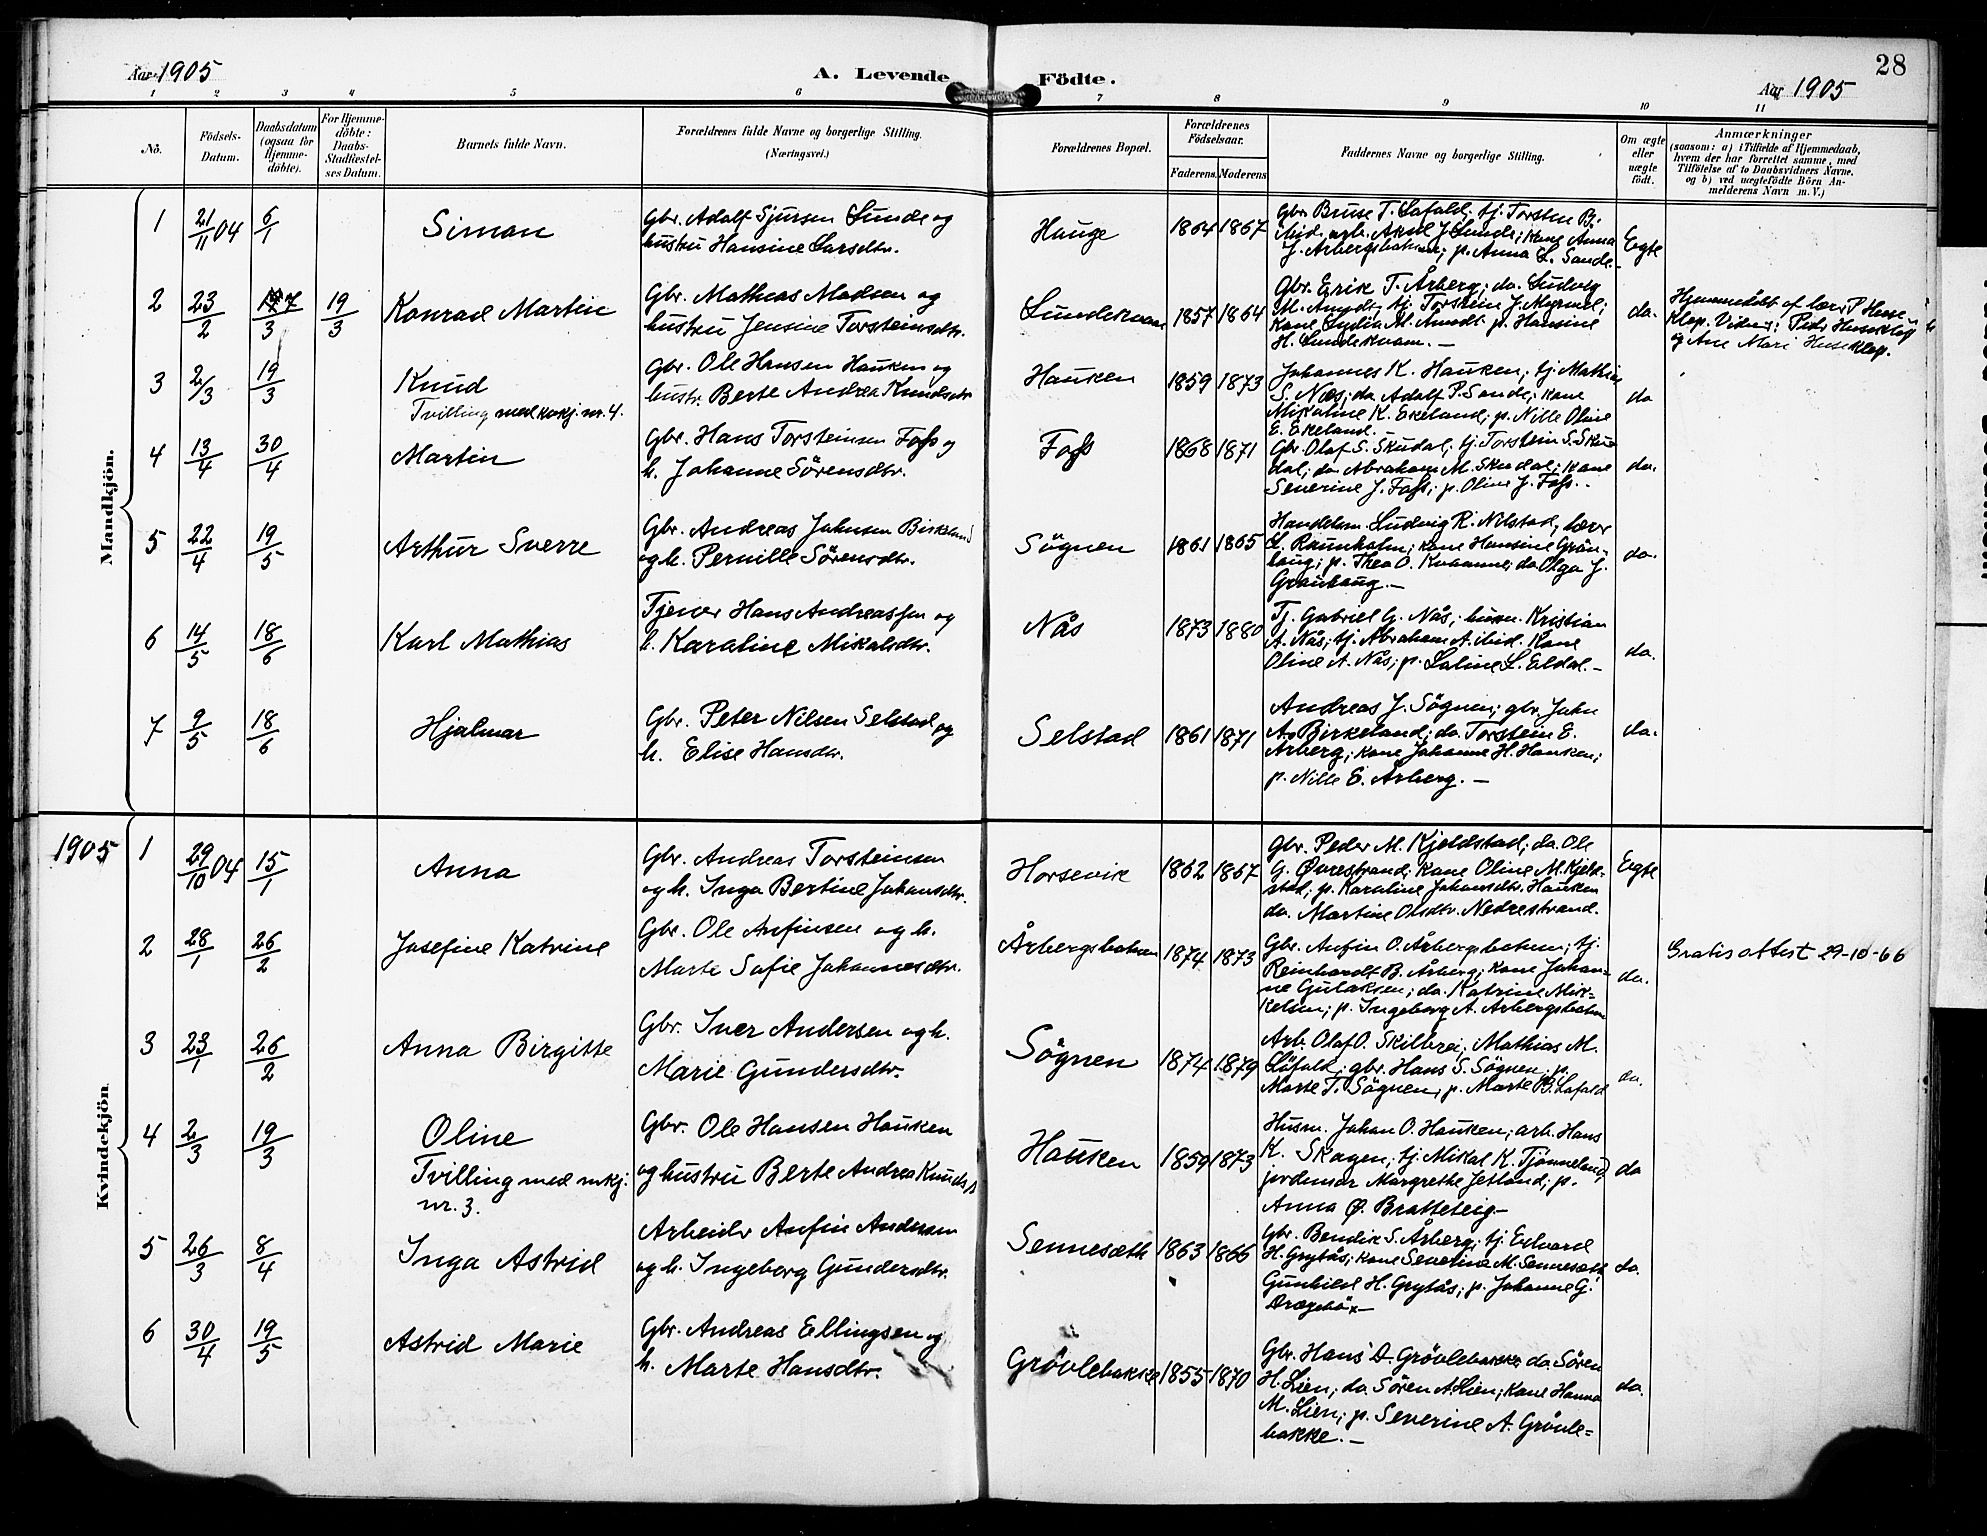 Aar 1905
A. Levende Födte.
28
Aar 1905
1 2 3 4 5 6 7 8 9 10 11
No.
Födsels-Datum.
Daabsdatum (ogsaa for Hjemme-döbte).
For Hjemme-döbte: Daabs-Stadfæstel-ses Datum.
Barnets fulde Navn.
Forældrenes fulde Navne og borgerlige Stilling.
(Næringsvei.)
Forældrenes Bopæl.
Forældrenes Födselsaar.
Faderens. Moderens
Faddernes Navne og borgerlige Stilling.
Om ægte eller uægte födt.
Anmærkninger
(saasom: a) i Tilfælde af Hjemmedaab,
hvem der har forrettet samme, med
Tilföielse af to Daabsvidners Navne,
og b) ved uægtefödte Börn An-
melderens Navn m. V.)
Mandkjön.
1 21/11 04 6/1 Simon
Gbr. Adolf Sjursen Sunde og
hustru Hansine Larsdtr.
Hauge 1864 1867
Gbr. Bruse T. Lofald; tj. Torsten B.
ibid. arb. Aksel J. Sunde; kone Anna
J. Årbergsbotnen; p. Anna L. Sande.
Egte
2 23/2 17/3 19/3 Konrad Martin
Gbr. Mathias Madsen og
hustru Jensine Torsteinsdtr.
Sundekvam 1857 1864
Gbr. Erik T. Årberg; do. Ludvig
M. Amdt; tj. Torstein J. Myrmel;
Kone Lydia M. Amdt. p. Hansine
H. Sundekvam. —
do.
Hjemmedöbt af lærer P. Huse-
klep. Vidner: Peder Huseklep
og Ane Mari Huseklep.
3 2/3 19/3 Knud
Tvilling med kvkj. nr. 4.
Gbr. Ole Hansen Hauken og
hustr. Berte Andrea Knudsdtr
Hauken 1859 1873
Johannes K. Hauken; tj. Mathias
S. Næs; do. Adolf P. Sande; kone
Mikaline K. Ekeland; p. Nille Oline
E. Ekeland.
do
4 13/4 30/4 Martin
Gbr. Hans Torsteinsen Foss og
h. Johanne Sörensdtr.
Foss 1868 1871
Gbr. Olaf S. Skudal; tj. Torstein S. Sku
dal; do. Abraham M. Skudal; kone
Severine J. Foss; p. Oline J. Foss.
do.
5 22/4 19/5 Arthur Sverre
Gbr. Andreas Johnsen Birkeland
og h. Pernille Sörensdtr.
Sögnen 1861 1865
Handelsm. Ludvig R. Nilstad, lærer
L. Raunholm; kone Hansine Grön-
haug; p. Thea O. Kvamme; do. Olga J.
Grauhaug. —
do.
6 14/5 18/6 Karl Mathias
Tjener Hans Andreassen og
h. Karaline Mikalsdtr.
Nås 1873 1880
Tj. Gabriel G. Nås; husm. Kristian
A. Nås; tj. Abraham A. ibid. Kone
Oline A. Nås; p. Saline L. Eldal. —
do.
7 9/5 18/6 Hjalmar
Gbr. Peter Nilsen Selstad og
h. Elise Hansdtr.
Selstad 1861 1871
Andreas J. Sögnen; gbr. John
A. Birkeland; do. Torstein E.
Årberg; kone Johanne H. Hauken;
p. Nille E. Årberg. —
do.
1905
Kvindekjön
1 29/10 04 15/1 Anna
Gbr. Andreas Torsteinsen
og h. Inga Bertine Johansdtr.
Horsevik 1862 1867
Gbr. Peder M. Kjeldstad; do. Ole
G. Övrestrand; kone Oline M. Kjeld-
stad; p. Karaline Johansdtr. Hauken
do. Martine Olsdtr. Nedrestrand.
Egte
2 28/1 26/2 Josefine Katrine
Gbr. Ole Anfinsen og h.
Marte Sofie Johannesdtr.
Årbergsbotnen 1874 1873
Gbr. Anfin O. Årbergsbotnen; tj.
Reinhardt B. Årberg; kone Johan-
ne Gulaksen; do. Katrine Mik-
kelsen; p. Ingeborg A. Årbergsbotnen
do.
Gratis attest 29-10-66
3 23/1 26/2 Anna Birgitte
Gbr. Iver Andersen og h.
Marie Gundersdtr.
Sögnen 1874 1879
Arb. Olaf O. Skilbrei; Mathias M.
Löfald; gbr. Hans S. Sögnen; p.
Marte T. Sögnen; p. Marte B. Lofald
do.
4 2/3 19/3 Oline
Tvilling med mkj.
nr. 3.
Gbr. Ole Hansen Hauken
og hustru Berte Andrea Knudsd
Hauken 1859 1873
Husm. Johan O. Hauken; arb. Hans
K. Skagen; tj. Mikal K. Tjönneland;
jordemor Margrethe Jetland; p.
Anna Ø. Bratteteig —
do
5 26/3 8/4 Inga Astrid
Arbeider Anfin Andersen
og h. Ingeborg Gundersdtr.
Sennesæth 1863 1866
Gbr. Bendik S. Årberg; tj. Edvard
H. Grytås; kone Severina M. Sennesæth
Gunhild H. Grytås; p. Johanne G.
Dragebö. —
do.
6 30/4 19/5 Astrid Marie
Gbr. Andreas Ellingsen og
h. Marte Hansdtr.
Grövlebakke 1855 1870
Gbr. Hans A. Grövlebakke; do. Sören
H. Lien; do. Sören A. Lien; kone Hanna
M. Lien; p. Severine A. Grövle=
bakke. —
do.